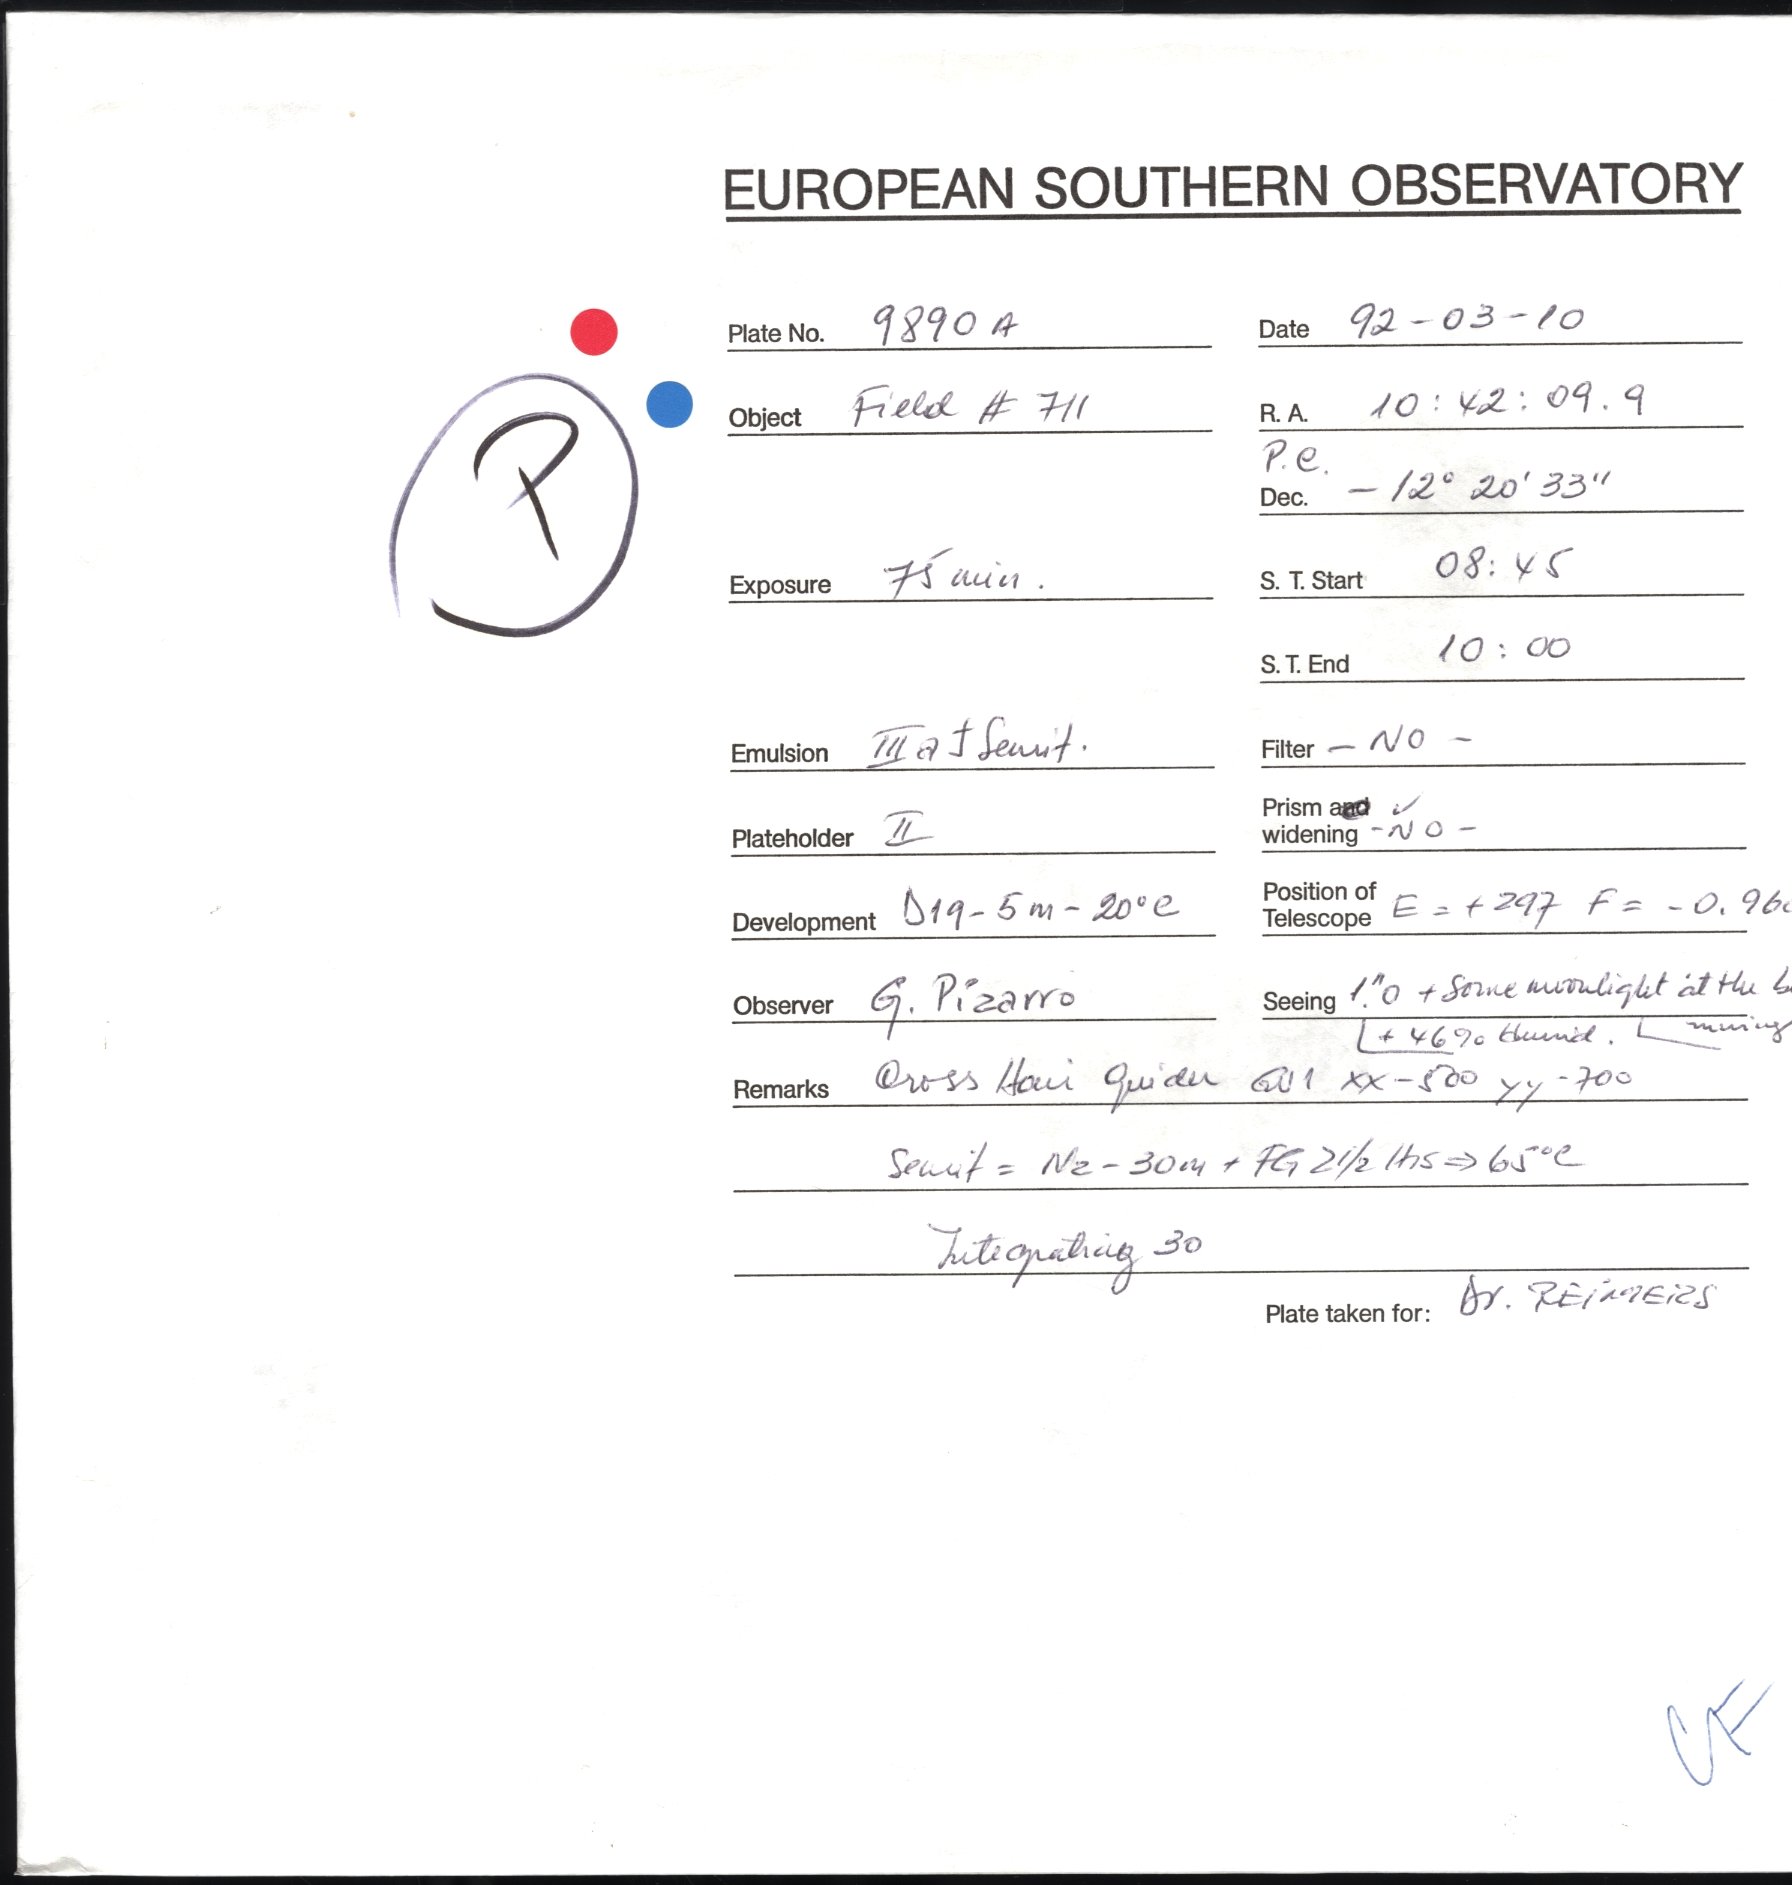 EUROPEAN SOUTHERN OBSERVATORY
Plate No. 9890 A Date 92-03-10
Object Field # 711 R. A. 10 : 42 : 09. 9
P.C.
P
Dec. - 12° 20' 33"
Exposure 75 min. S. T. Start 08: 45
S. T. End 10 : 00
Emulsion III a J Sensit. Filter - NO -
Prism and ✓
Plateholder II widening - NO -
Position of
Development D19 - 5 m - 20°C Telescope E = + 297 F = - 0. 96
Observer G. Pizarro Seeing 1."0 + Some moonlight at the
+ 46% Humid.
Remarks Cross Hair Guider GU1 xx - 500 yy - 700
Sensit = N2 - 30m + FG 2 1/2 Hrs ⇒ 65°C
Integrating 30
Plate taken for: Dr. REIMERS